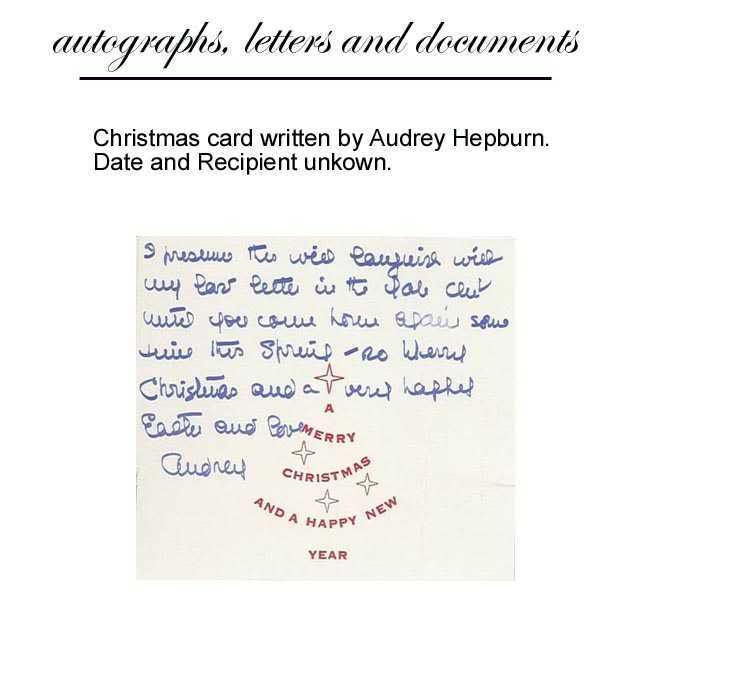 autographs, letters and documents
Christmas card written by Audrey Hepburn.
Date and Recipient unkown.
I presume this will languish with
my last letter in the
until you come home again some
time this Spring – so Merry
Christmas and a very happy
Easter and love
Audrey
A
MERRY
CHRISTMAS
AND A HAPPY NEW
YEAR